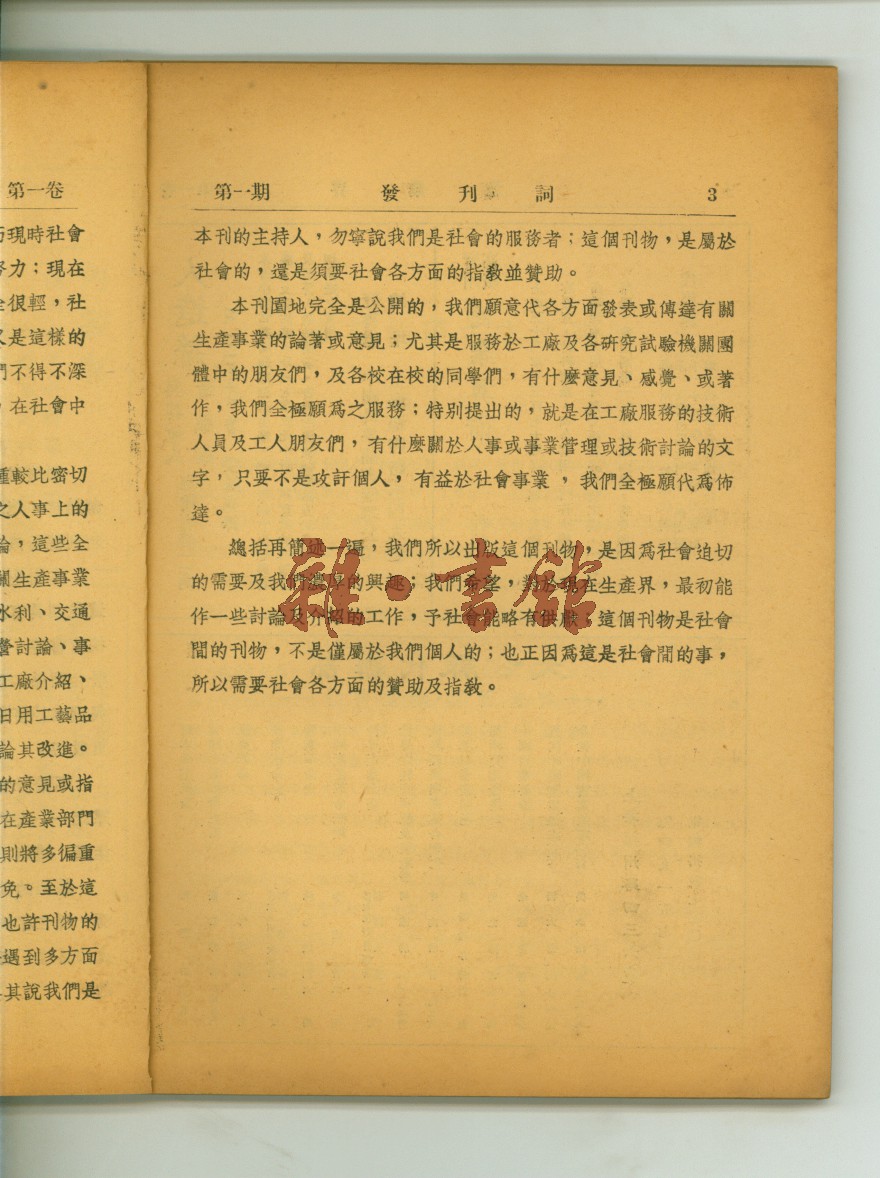 第一卷
現時社會
力；現在
很輕，社
是這樣的
不得不深
，在社會中
較比密切
之人事上的
論，這些全
生產事業
水利、交通
討論、事
工廠介紹、
日用工藝品
論其改進。
的意見或指
在產業部門
則將多偏重
免。至於這
也許刊物的
遇到多方面
其說我們是
第一期 發刊詞 3
本刊的主持人，勿寧說我們是社會的服務者；這個刊物，是屬於
社會的，還是須要社會各方面的指敎並贊助。
本刊園地完全是公開的，我們願意代各方面發表或傳達有關
生產事業的論著或意見；尤其是服務於工廠及各硏究試驗機關團
體中的朋友們，及各校在校的同學們，有什麼意見、感覺、或著
作，我們全極願爲之服務；特別提出的，就是在工廠服務的技術
人員及工人朋友們，有什麼關於人事或事業管理或技術討論的文
字，只要不是攻訐個人，有益於社會事業，我們全極願代爲佈
達。
總括再簡述一遍，我們所以出版這個刊物，是因爲社會迫切
的需要及我們濃厚的興趣；我們希望，對於現在生產界，最初能
作一些討論及介紹的工作，予社會能略有供獻；這個刊物是社會
間的刊物，不是僅屬於我們個人的；也正因爲這是社會間的事，
所以需要社會各方面的贊助及指敎。
雜·書館